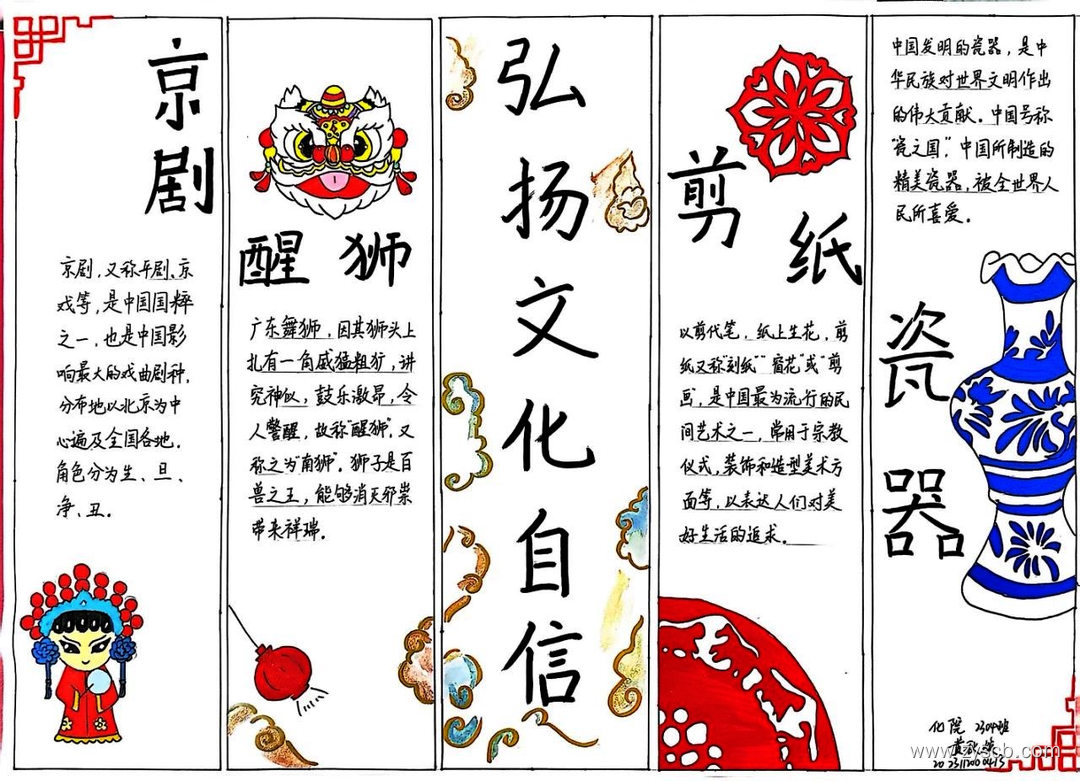 京剧
京剧，又称平剧、京
戏等，是中国国粹
之一，也是中国影
响最大的戏曲剧种，
分布地以北京为中
心遍及全国各地。
角色分为生、旦、
净、丑。
醒狮
广东舞狮，因其狮头上
扎有一角威猛粗犷，讲
究神似，鼓乐激昂，令
人警醒，故称"醒狮"。又
称之为"南狮"。狮子是百
兽之王，能够消灭邪祟
带来祥瑞。
弘扬文化自信
剪纸
以剪代笔，纸上生花，剪
纸又称"刻纸""窗花"或"剪
画，是中国最为流行的民
间艺术之一，常用于宗教
仪式，装饰和造型美术方
面等，以表达人们对美
好生活的追求。
中国发明的瓷器，是中
华民族对世界文明作出
的伟大贡献。中国号称
"瓷之国"，中国所制造的
精美瓷器，被全世界人
民所喜爱。
瓷器
化院 2304班